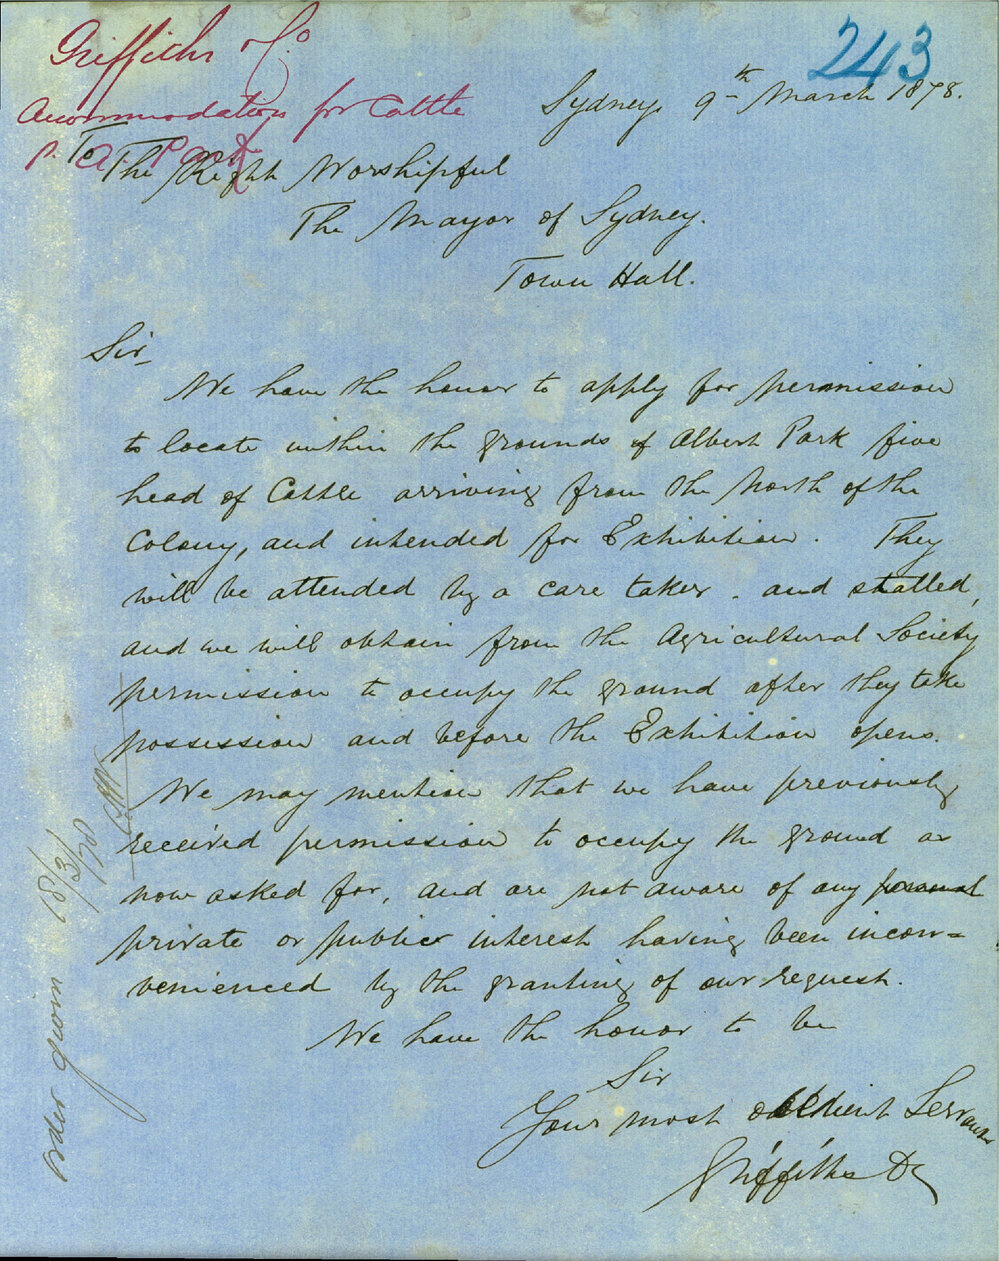 243
Griffiths & Co
Accommodation for Cattle
A. Park
Sydney 9th March 1878.
To The Right Worshipful
The Mayor of Sydney.
Town Hall.
Sir,
We have the honor to apply for permission
to locate within the grounds of Albert Park five
head of Cattle arriving from the North of the
Colony, and intended for Exhibition. They
will be attended by a care taker. and stalled,
and we will obtain from the Agricultural Society
permission to occupy the ground after they take
possession and before the Exhibition opens.
We may mention that we have previously
received permission to occupy the ground as
now asked for, and are not aware of any personal
private or public interest having been incon=
venienced by the granting of our request.
We have the honor to be
Sir
Your most obedient Servants
Griffiths & Co
order given 18/3/78